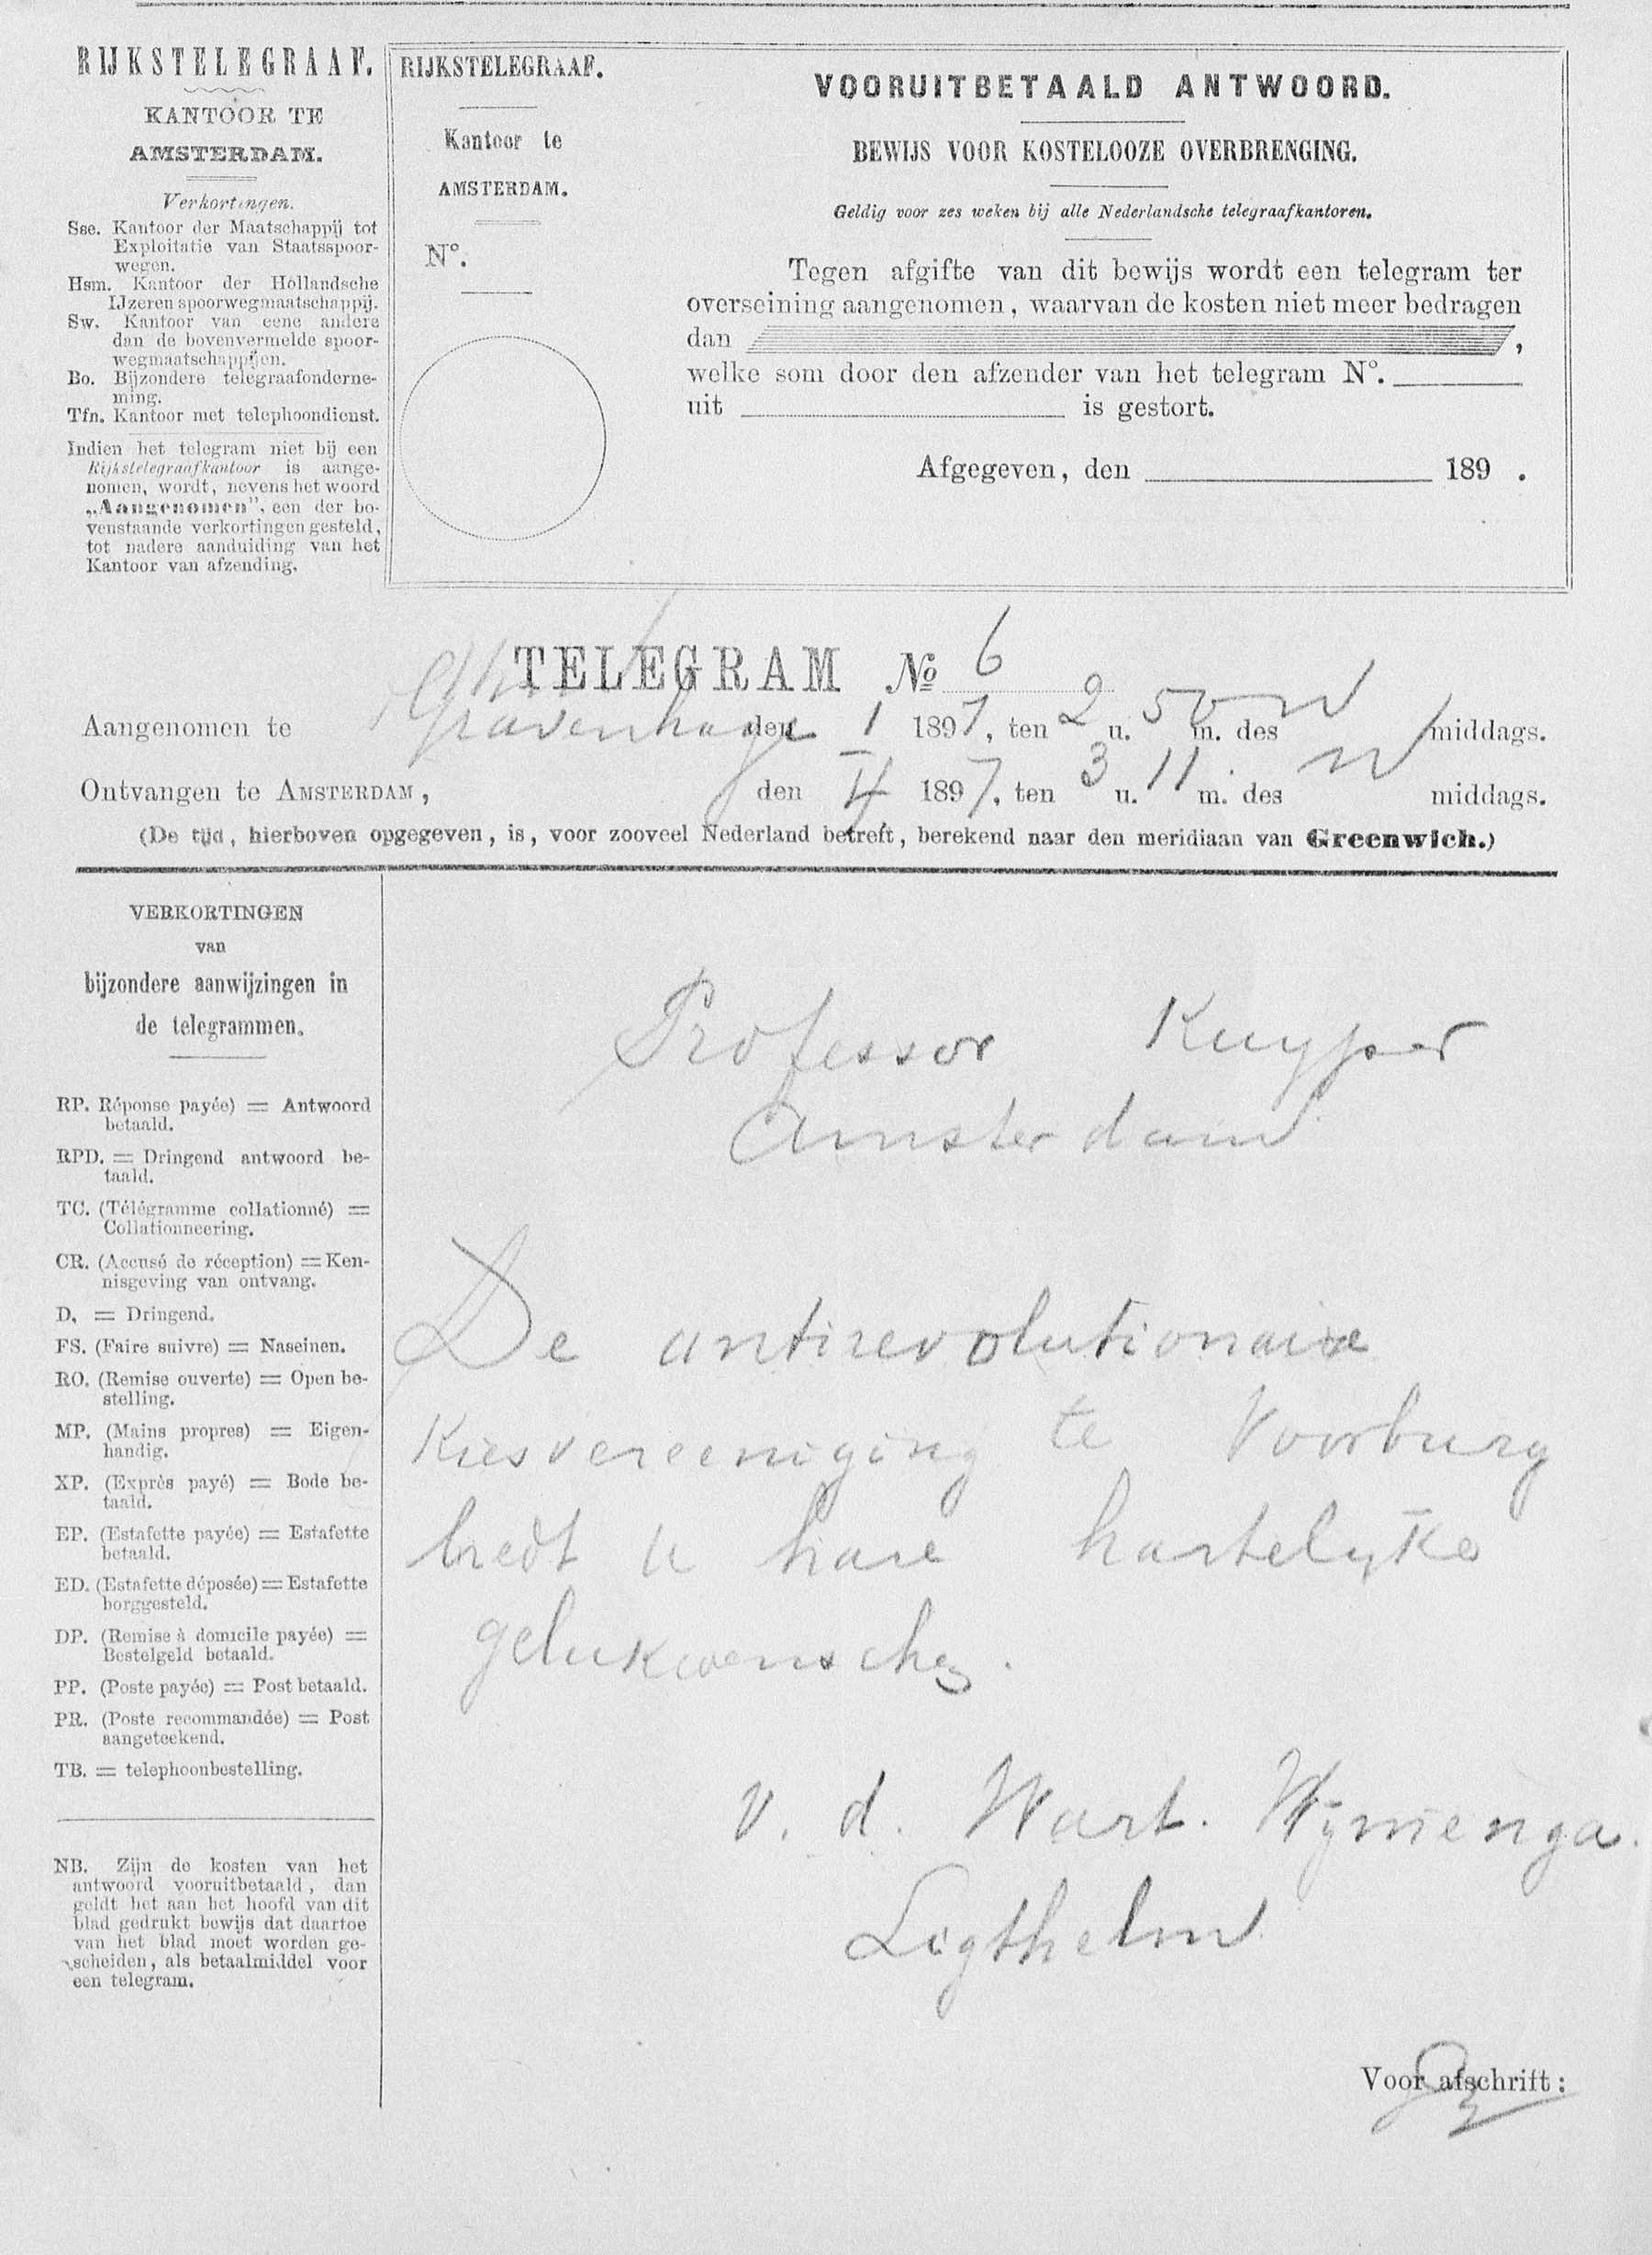 RIJKSTELEGRAAF.
KANTOOR TE
AMSTERDAM.
Verkortingen.
Sse. Kantoor der Maatschappij tot
Exploitatie van Staatsspoor-
wegen.
Hsm. Kantoor der Hollandsche
IJzeren spoorwegmaatschappij.
Sw. Kantoor van eene andere
dan de bovenvermelde spoor-
wegmaatschappijen.
Bo. Bijzondere telegraafonderne-
ming.
Tfn. Kantoor met telephoondienst.
Indien het telegram niet bij een
Rijkstelegraafkantoor is aange-
nomen, wordt, nevens het woord
„Aangenomen", een der bo-
venstaande verkortingen gesteld,
tot nadere aanduiding van het
Kantoor van afzending.
RIJKSTELEGRAAF.
Kantoor te
AMSTERDAM.
N°.
VOORUITBETAALD ANTWOORD.
BEWIJS VOOR KOSTELOOZE OVERBRENGING.
Geldig voor zes weken bij alle Nederlandsche telegraafkantoren.
Tegen afgifte van dit bewijs wordt een telegram ter
overseining aangenomen, waarvan de kosten niet meer bedragen
dan ,
welke som door den afzender van het telegram N°.
uit is gestort.
Afgegeven, den 189 .
TELEGRAM No 6
Aangenomen te Gravenhage den 1 1897, ten 2 u. 50 m. des N middags.
Ontvangen te AMSTERDAM, den 1/4 1897, ten 3 u. 11 m. des N middags.
(De tijd, hierboven opgegeven, is, voor zooveel Nederland betreft, berekend naar den meridiaan van Greenwich.)
VERKORTINGEN
van
bijzondere aanwijzingen in
de telegrammen.
RP. Réponse payée) = Antwoord
betaald.
RPD. = Dringend antwoord be-
taald.
TC. (Télégramme collationné) =
Collationneering.
CR. (Accusé de réception) = Ken-
nisgeving van ontvang.
D. = Dringend.
FS. (Faire suivre) = Naseinen.
RO. (Remise ouverte) = Open be-
stelling.
MP. (Mains propres) = Eigen-
handig.
XP. (Exprès payé) = Bode be-
taald.
EP. (Estafette payée) = Estafette
betaald.
ED. (Estafette déposée) = Estafette
borggesteld.
DP. (Remise à domicile payée) =
Bestelgeld betaald.
PP. (Poste payée) = Post betaald.
PR. (Poste recommandée) = Post
aangeteekend.
TB. = telephoonbestelling.
NB. Zijn de kosten van het
antwoord vooruitbetaald, dan
geldt het aan het hoofd van dit
blad gedrukt bewijs dat daartoe
van het blad moet worden ge-
scheiden, als betaalmiddel voor
een telegram.
Professor Kuyper
Amsterdam
De antirevolutionaire
Kiesvereeniging te Voorburg
biedt u hare hartelyke
gelukwenschen.
v. d. Wart. Wymenga.
Ligthelm
Voor afschrift: